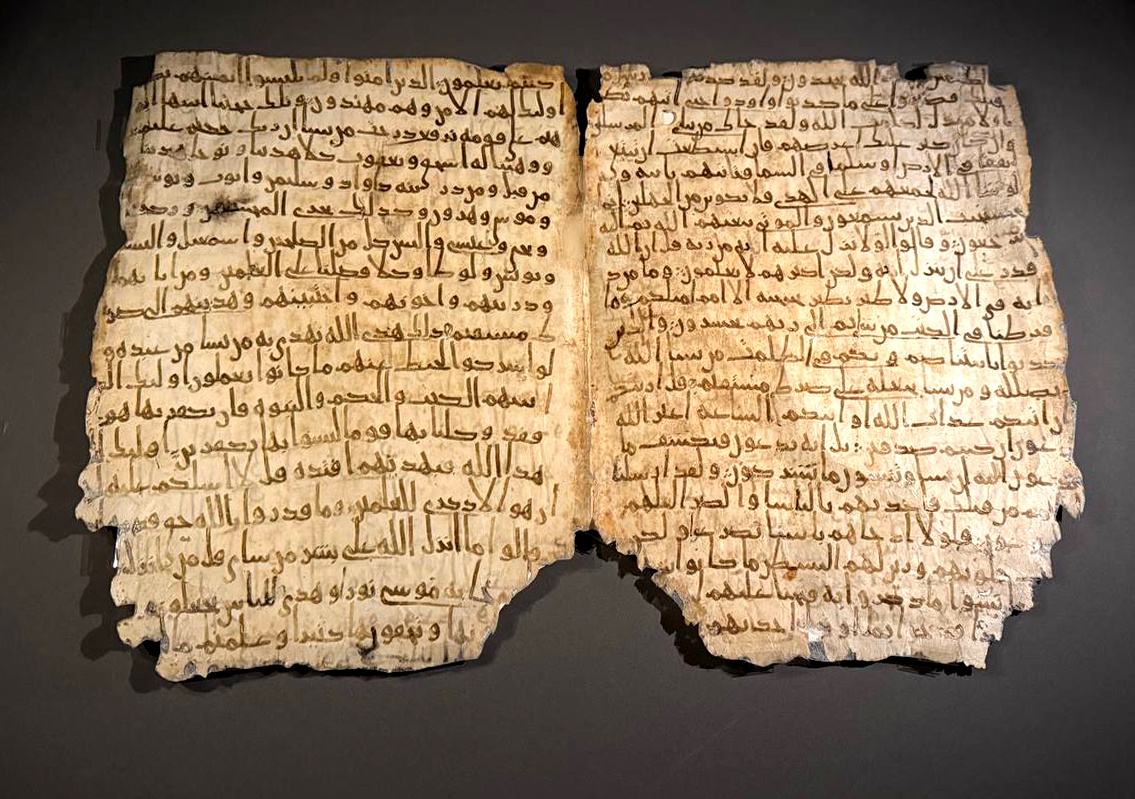 الله يجحدون ولقد كذبت
قبلك فصبروا على ما كذبوا واوذوا حتى اتيهم
ولا مبدل لكلمت الله ولقد جاك من نباي المرسلين
كبر عليك اعرضهم فان استطعت ان تبتغي
نفقا في الارض او سلما في السما فتاتيهم باية ولو
شا الله لجمعهم على الهدى فلا تكونن من الجهلين
يستجيب الذين يسمعون والموتى يبعثهم الله ثم اليه
يرجعون وقالوا لولا نزل عليه اية من ربه قل ان الله
قدر على ان ينزل اية ولكن اكثرهم لا يعلمون وما من د
ابة في الارض ولا طير يطير بجنحيه الا امم امثلكم ما
فرطنا في الكتب من شي ثم الى ربهم يحشرون والذين
كذبوا بايتنا صم وبكم في الظلمت من يشا الله
يضلله ومن يشا يجعله على صرط مستقيم قل اريتكم
ان اتيكم عذاب الله او اتتكم الساعة اغير الله
تدعون ان كنتم صدقين بل اياه تدعون فيكشف ما
تدعون اليه ان شا وتنسون ما تشركون ولقد ارسلنا
امم من قبلك فاخذنهم بالباسا والضرا لعلهم
فلولا اذ جاهم باسنا تضرعوا ولكن
قلوبهم وزين لهم الشيطن ما كانوا
نسوا ما ذكروا به فتحنا عليهم
كنتم تعلمون الذين امنوا ولم يلبسوا ايمنهم
اوليك لهم الامن وهم مهتدون وتلك حجتنا اتينها
هيم على قومه نرفع درجت من نشا ان ربك حكيم عليم
ووهبنا له اسحق ويعقوب كلا هدينا ونوحا هدينا
من قبل ومن ذريته داود وسليمن وايوب ويوسف
وموسى وهرون وكذلك نجزي المحسنين
ويحيى وعيسى والياس كل من الصلحين واسمعيل واليسع
ويونس ولوطا وكلا فضلنا على العلمين ومن ابايهم
وذريتهم واخونهم واجتبينهم وهدينهم الى صر
ط مستقيم ذلك هدى الله يهدي به من يشا من عبده و
لو اشركوا لحبط عنهم ما كانوا يعملون اوليك الذ
ين اتينهم الكتب والحكم والنبوة فان يكفر بها هو
فقد وكلنا بها قوما ليسوا بها بكفرين اوليك
هدى الله فبهديهم اقتده قل لا اسلكم عليه
ان هو الا ذكرى للعلمين وما قدروا الله حق قدره
قالوا ما انزل الله على بشر من شي قل من انزل
به موسى نورا وهدى للناس تجعلونه
تبدونها وتخفون كثيرا وعلمتم ما